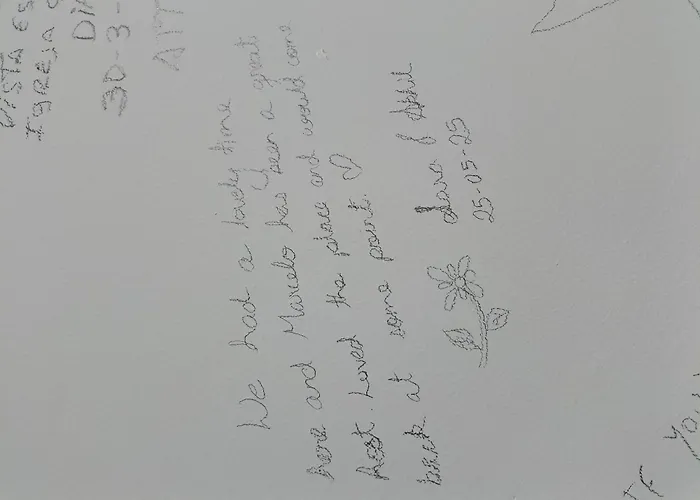 VISTA ES
IGREJA
DIA
30-3-
We had a lovely time
here and Marcelo has been a great
host. Loved the place and would come
back at some point. ♡
& April
25-05-25
IF YO